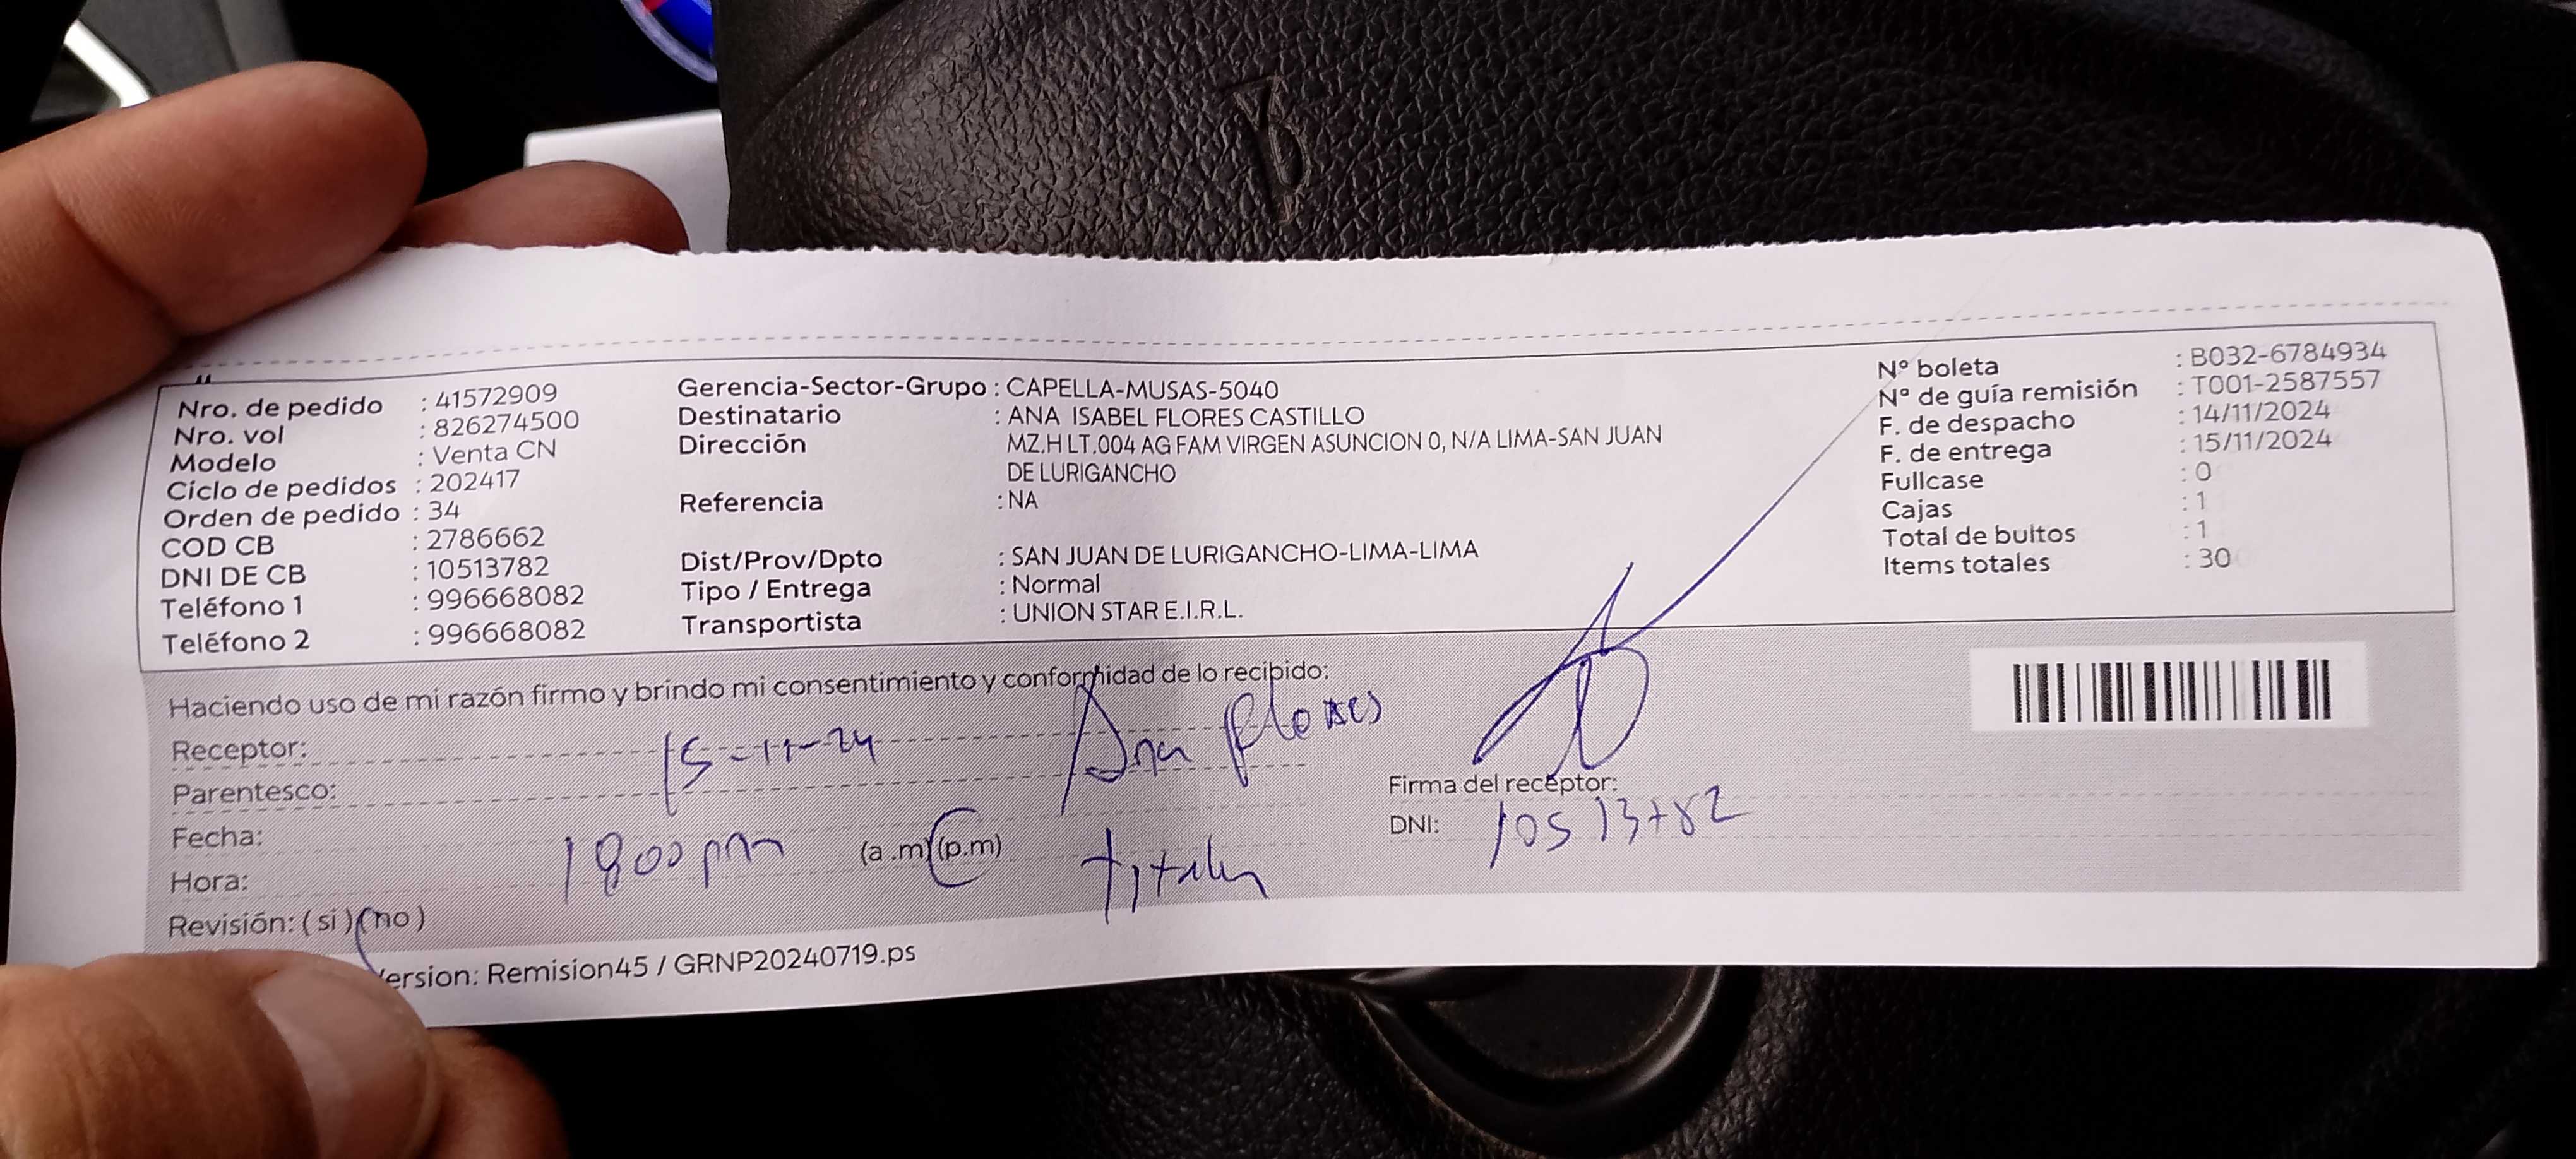 Nro. de pedido : 41572909
Nro. vol : 826274500
Modelo : Venta CN
Ciclo de pedidos : 202417
Orden de pedido : 34
COD CB : 2786662
DNI DE CB : 10513782
Teléfono 1 : 996668082
Teléfono 2 : 996668082
Gerencia-Sector-Grupo : CAPELLA-MUSAS-5040
Destinatario : ANA ISABEL FLORES CASTILLO
Dirección MZ.H LT.004 AG FAM VIRGEN ASUNCION 0, N/A LIMA-SAN JUAN
DE LURIGANCHO
Referencia : NA
Dist/Prov/Dpto : SAN JUAN DE LURIGANCHO-LIMA-LIMA
Tipo / Entrega : Normal
Transportista : UNION STAR E.I.R.L.
N° boleta : B032-6784934
N° de guía remisión : T001-2587557
F. de despacho : 14/11/2024
F. de entrega : 15/11/2024
Fullcase : 0
Cajas : 1
Total de bultos : 1
Items totales : 30
Haciendo uso de mi razón firmo y brindo mi consentimiento y conformidad de lo recibido:
Receptor: 15-11-24 Ana Flores
Parentesco:
Fecha:
Hora: 1800 pm (a .m)(p.m) titular
Revisión: ( si ) (no )
Firma del receptor:
DNI: 10513782
ersion: Remision45 / GRNP20240719.ps